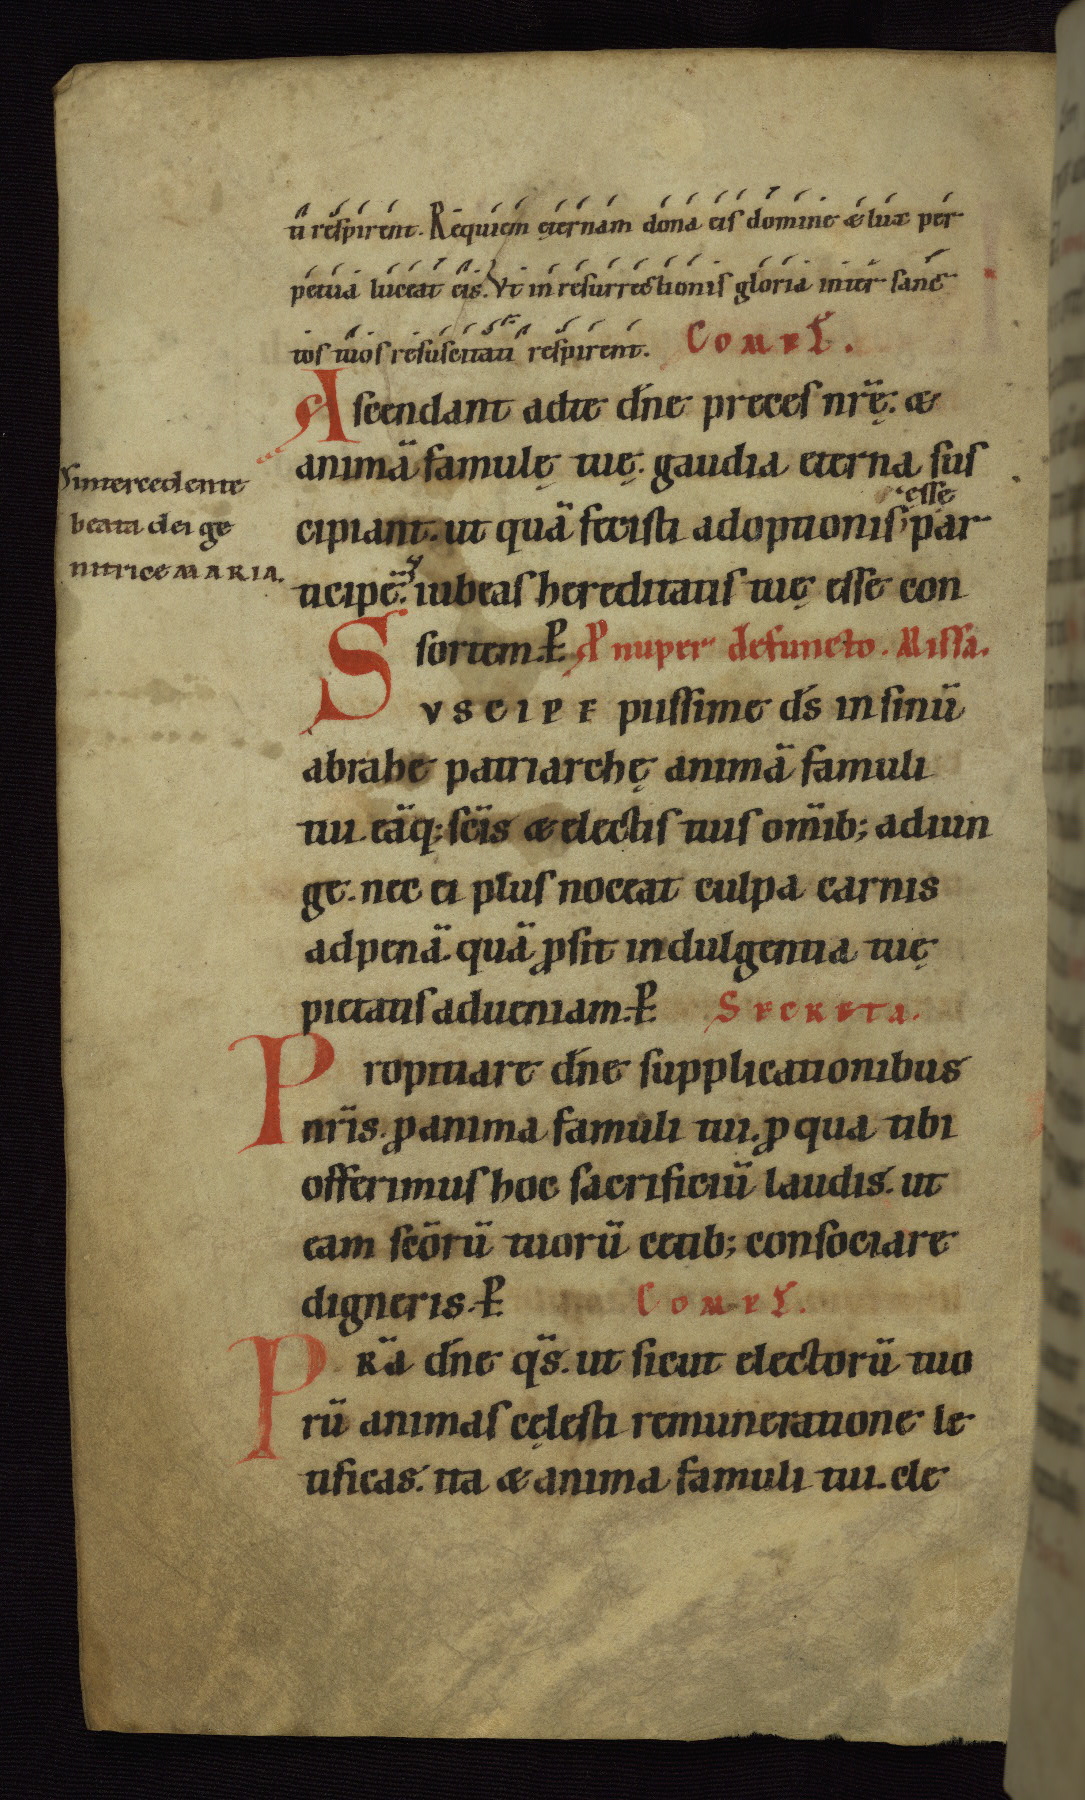 ti respirent. Requiem eternam dona eis domine & lux per
petua luceat eis. Vt in resurrectionis gloria inter sanc
tos tuos resuscitati respirent. COMPL.
Ascendant ad te dñe preces nrę. &
animā famulę tuę. gaudia eterna sus
cipiant. ut quā fecisti adoptionis esse par
ticipē. iubeas hereditatis tuę esse con
sortem. P. P nuper defuncto. Missa.
SVSCIPE piissime ds in sinū
abrahe patriarchę animā famuli
tui. eāq; scis & electis tuis omīb; adiun
ge. nec ei plus noceat culpa carnis
ad penā. quā ꝓsit indulgentia tuę
pietatis ad ueniam. P. SECRETA.
Propitiare dñe supplicationibus
nris. ꝓ anima famuli tui. ꝓ qua tibi
offerimus hoc sacrificiū laudis. ut
eam scōrū tuorū cetib; consociare
digneris. P. COMPL.
PRā dñe qs. ut sicut electorū tuo
rū animas cęlesti remuneratione le
tificas. ita & anima famuli tui. cle
intercedente
beata dei ge
nitrice MARIA.